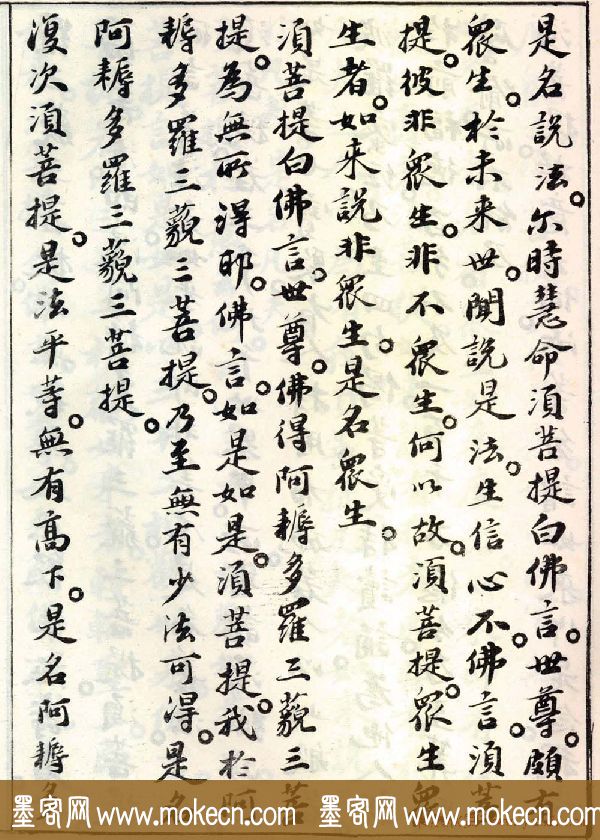 是名說法。尒時慧命須菩提白佛言。世尊。頗有
衆生。於未来世。聞說是法。生信心不。佛言。須菩
提。彼非衆生。非不衆生。何以故。須菩提。衆生衆
生者。如来說非衆生。是名衆生。
須菩提白佛言。世尊。佛得阿耨多羅三藐三菩
提。為無所得耶。佛言。如是如是。須菩提。我於阿
耨多羅三藐三菩提。乃至無有少法可得。是名
阿耨多羅三藐三菩提。
復次須菩提。是法平等。無有高下。是名阿耨多
墨客网 www.mokecn.com 墨客网 www.mokecn.com